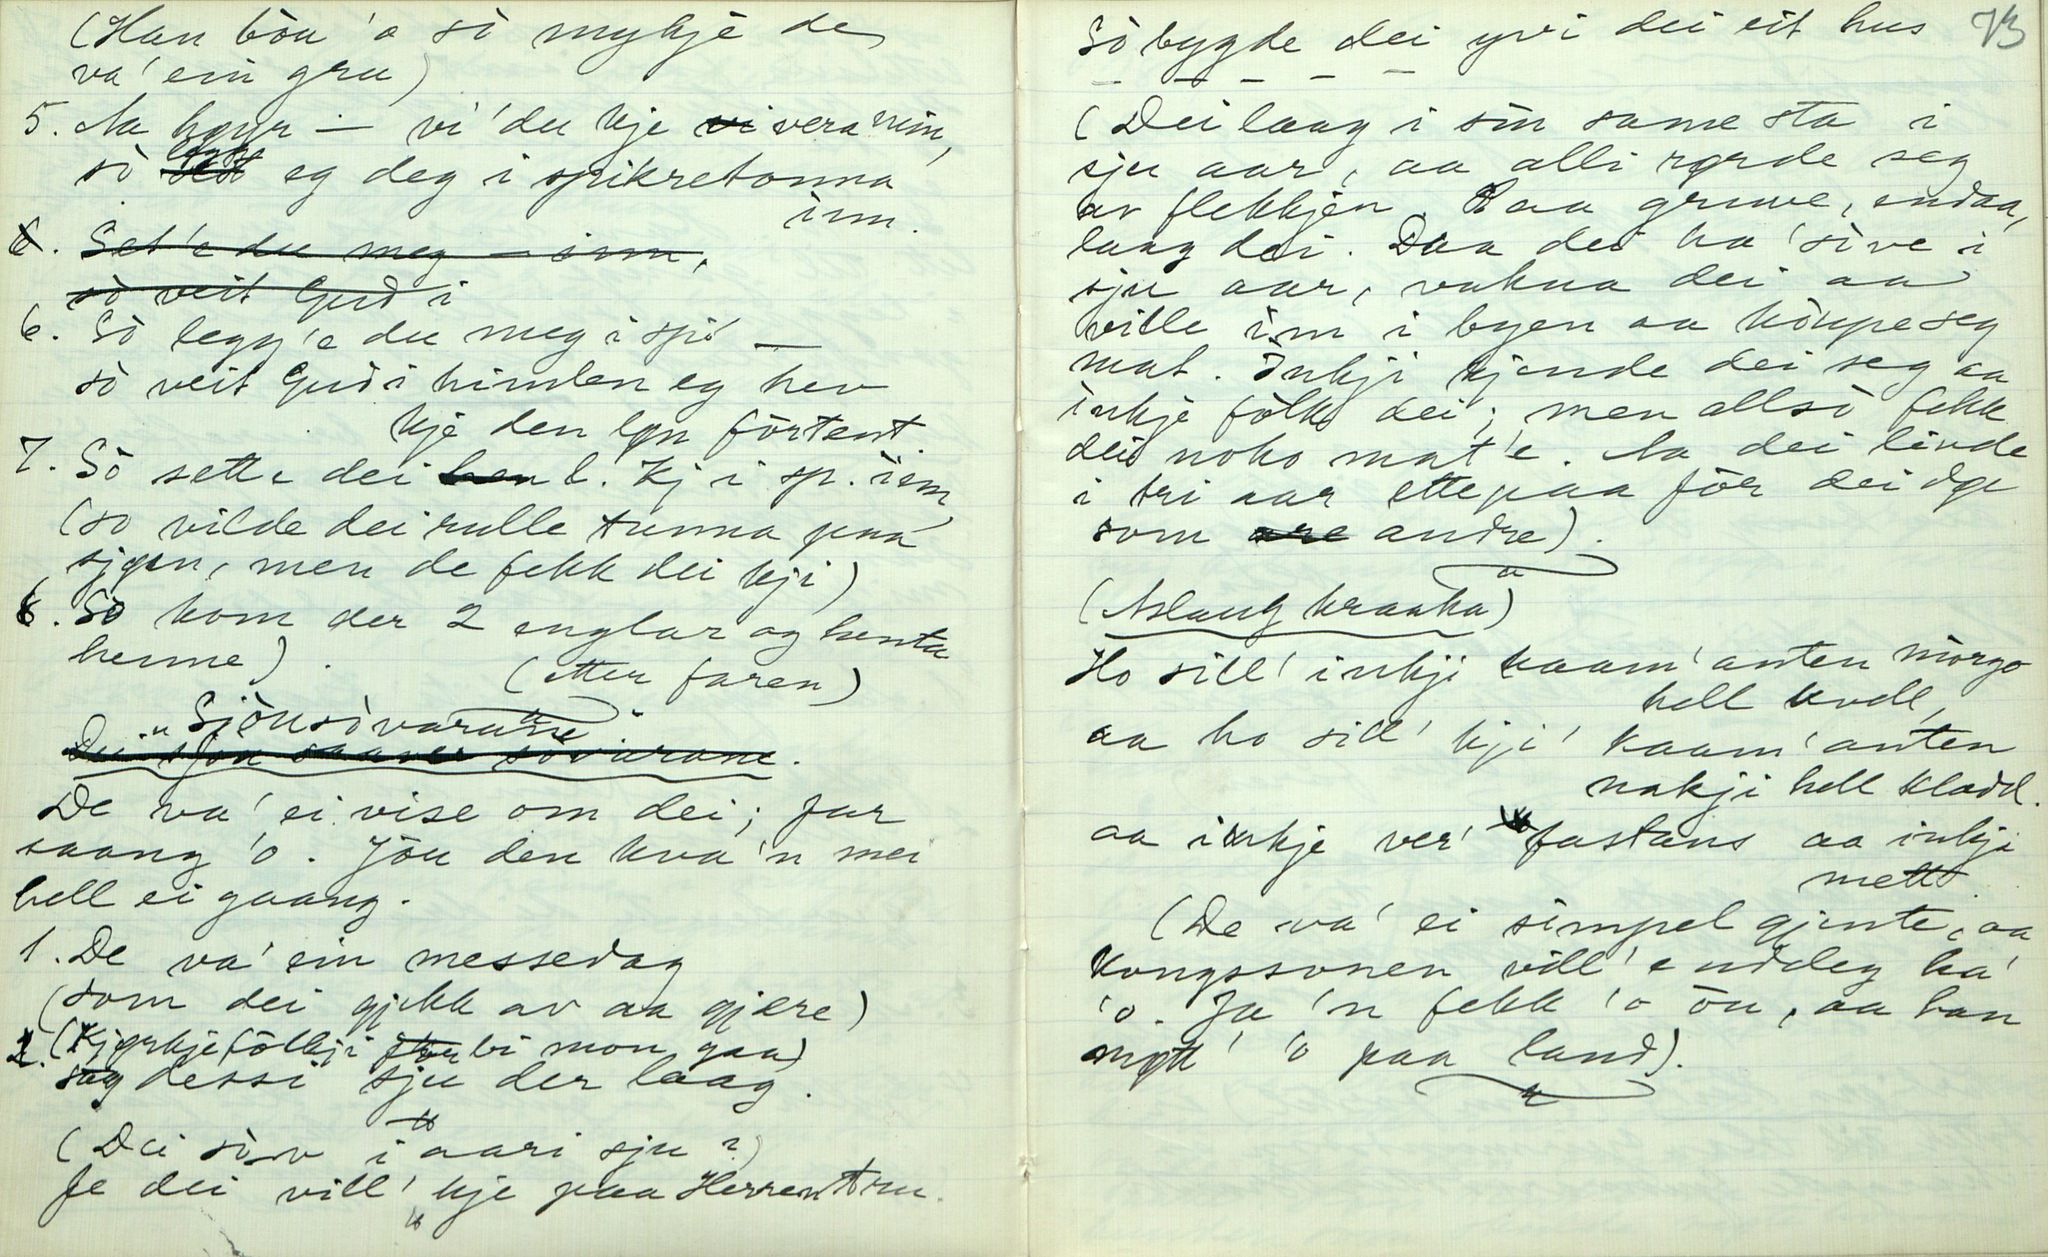 (Han bòu 'o sò mykjé de
va' ein gru)
5. Aa høyr — vi' du kje vi vera mim,
sò legg eg deg i spikretonna
inn.
6. Set'e du meg — inn,
sò veit Gud i
6. Sò legg'e du meg i spi —
sò veit Gud i himlen eg hev
kje den løn fòrtent
7. Sò sette dei l. Kj i sp. inn
(so vilde dei rulle tunna paa
sjøen, men de fekk dei kji)
8. Sò kom der 2 englar og henta
henne). (etter faren)
"Sjòusòvarane"
Dei sjòu sovarane.
De va' ei vise om dei; far
saang 'o. Jòu den kva'n mei
hell ei gaang.
1. De va' ein messedag
(som dei gjekk av aa gjære)
2. (Kjørkjefòlkji bi mon gaa)
sag dessi sju der laag.
(Dei sòv i aari sju?)
Fe dei vill' kje paa Herren tru.
73
Sò bygde dei yvi dei eit hus
— — — — —
(Dei laag i sin same sta i
sju aar, aa alli rørde seg
av flekkjen. Paa gruve, endaa,
laag dei. Daa dei ha' sòve i
sju aar, vakna dei aa
ville inn i byen aa kòupe seg
mat. Inkji kjende dei seg aa
inkje fòlk dei; men allsò fekk
dei noko mat'e. Aa dei livde
i tri aar ettepaa fòr dei døe
som andre).
(Aslaug kraaka)
Ho sill' inkji kaam' anten mòrgo
hell kvell,
aa ho sill' kji' kaam' anten
nakji hell kladd.
aa inkje ver' fastans aa inkji
mett.
(De va' ei simpel gjente, aa
Kongssonen vill' endeleg ha'
'o. Ja 'n fekk 'o òu, aa han
møtt' 'o paa land).